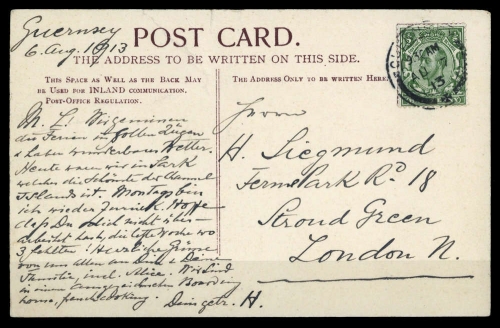 Guernsey
6. Aug. 1913
POST CARD.
THE ADDRESS TO BE WRITTEN ON THIS SIDE.
THIS SPACE AS WELL AS THE BACK MAY
BE USED FOR INLAND COMMUNICATION.
POST-OFFICE REGULATION.
THE ADDRESS ONLY TO BE WRITTEN HERE.
M. L! Wir geniessen
die Ferien in vollen Zügen
& haben wunderbares Wetter.
Heute waren wir in Sark
welches die Schönste der Channel
Islands ist. Montag bin
ich wieder zurück. Hoffe
dass Du Dich nicht über-
arbeitet hast, die letzte Woche wo
3 fehlten. Herzliche Grüsse
von uns Allen an Dich & Deine
Familie, incl. Alice. Wir sind
in einem ausgezeichneten Boarding
house, good cooking.
Dein getr. H.
Herrn
H. Siegmund
Ferme Park Rd 18
Stroud Green
London N.